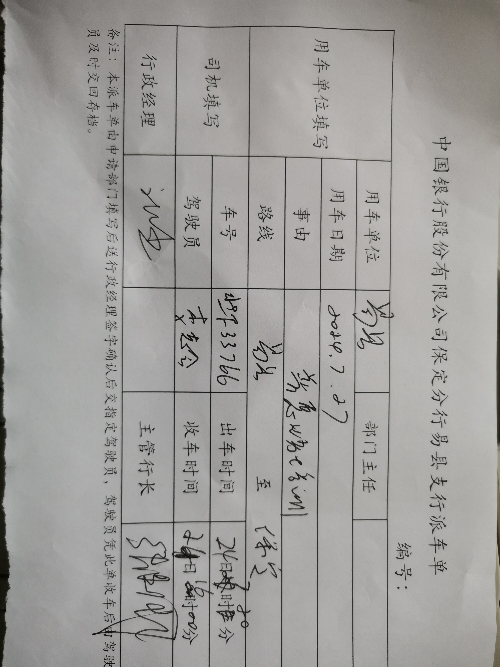 中国银行股份有限公司保定分行易县支行派车单
编号：
用车单位填写 用车单位 易县 部门主任
用车日期 2024.7.27
事由 普惠
路线 易县 至 保定
司机填写 车号 33766 出车时间 日 时 分
驾驶员 收车时间 日 时 分
行政经理 主管行长
备注：本派车单由申请部门填写后送行政经理签字确认后交指定驾驶员，驾驶员凭此单收车后由驾驶
员及时交回存档。